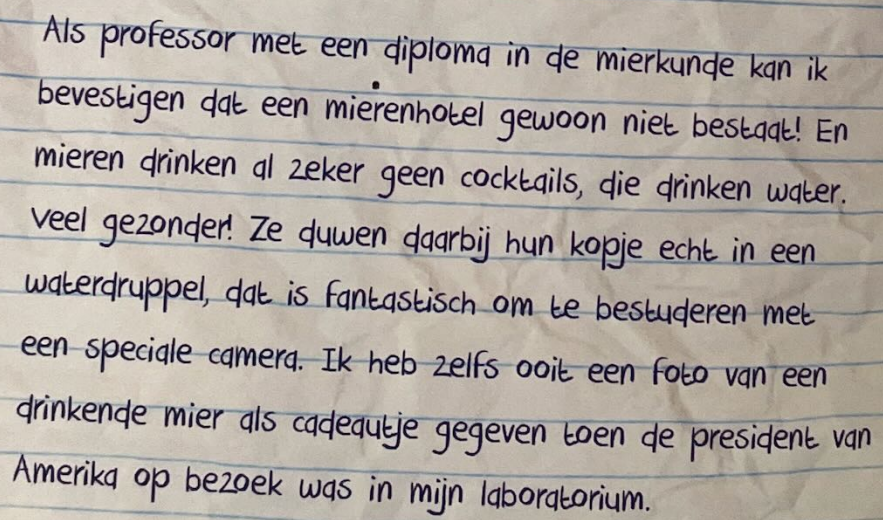 Als professor met een diploma in de mierkunde kan ik
bevestigen dat een mierenhotel gewoon niet bestaat! En
mieren drinken al zeker geen cocktails, die drinken water.
Veel gezonder! Ze duwen daarbij hun kopje echt in een
waterdruppel, dat is fantastisch om te bestuderen met
een speciale camera. Ik heb zelfs ooit een foto van een
drinkende mier als cadeautje gegeven toen de president van
Amerika op bezoek was in mijn laboratorium.